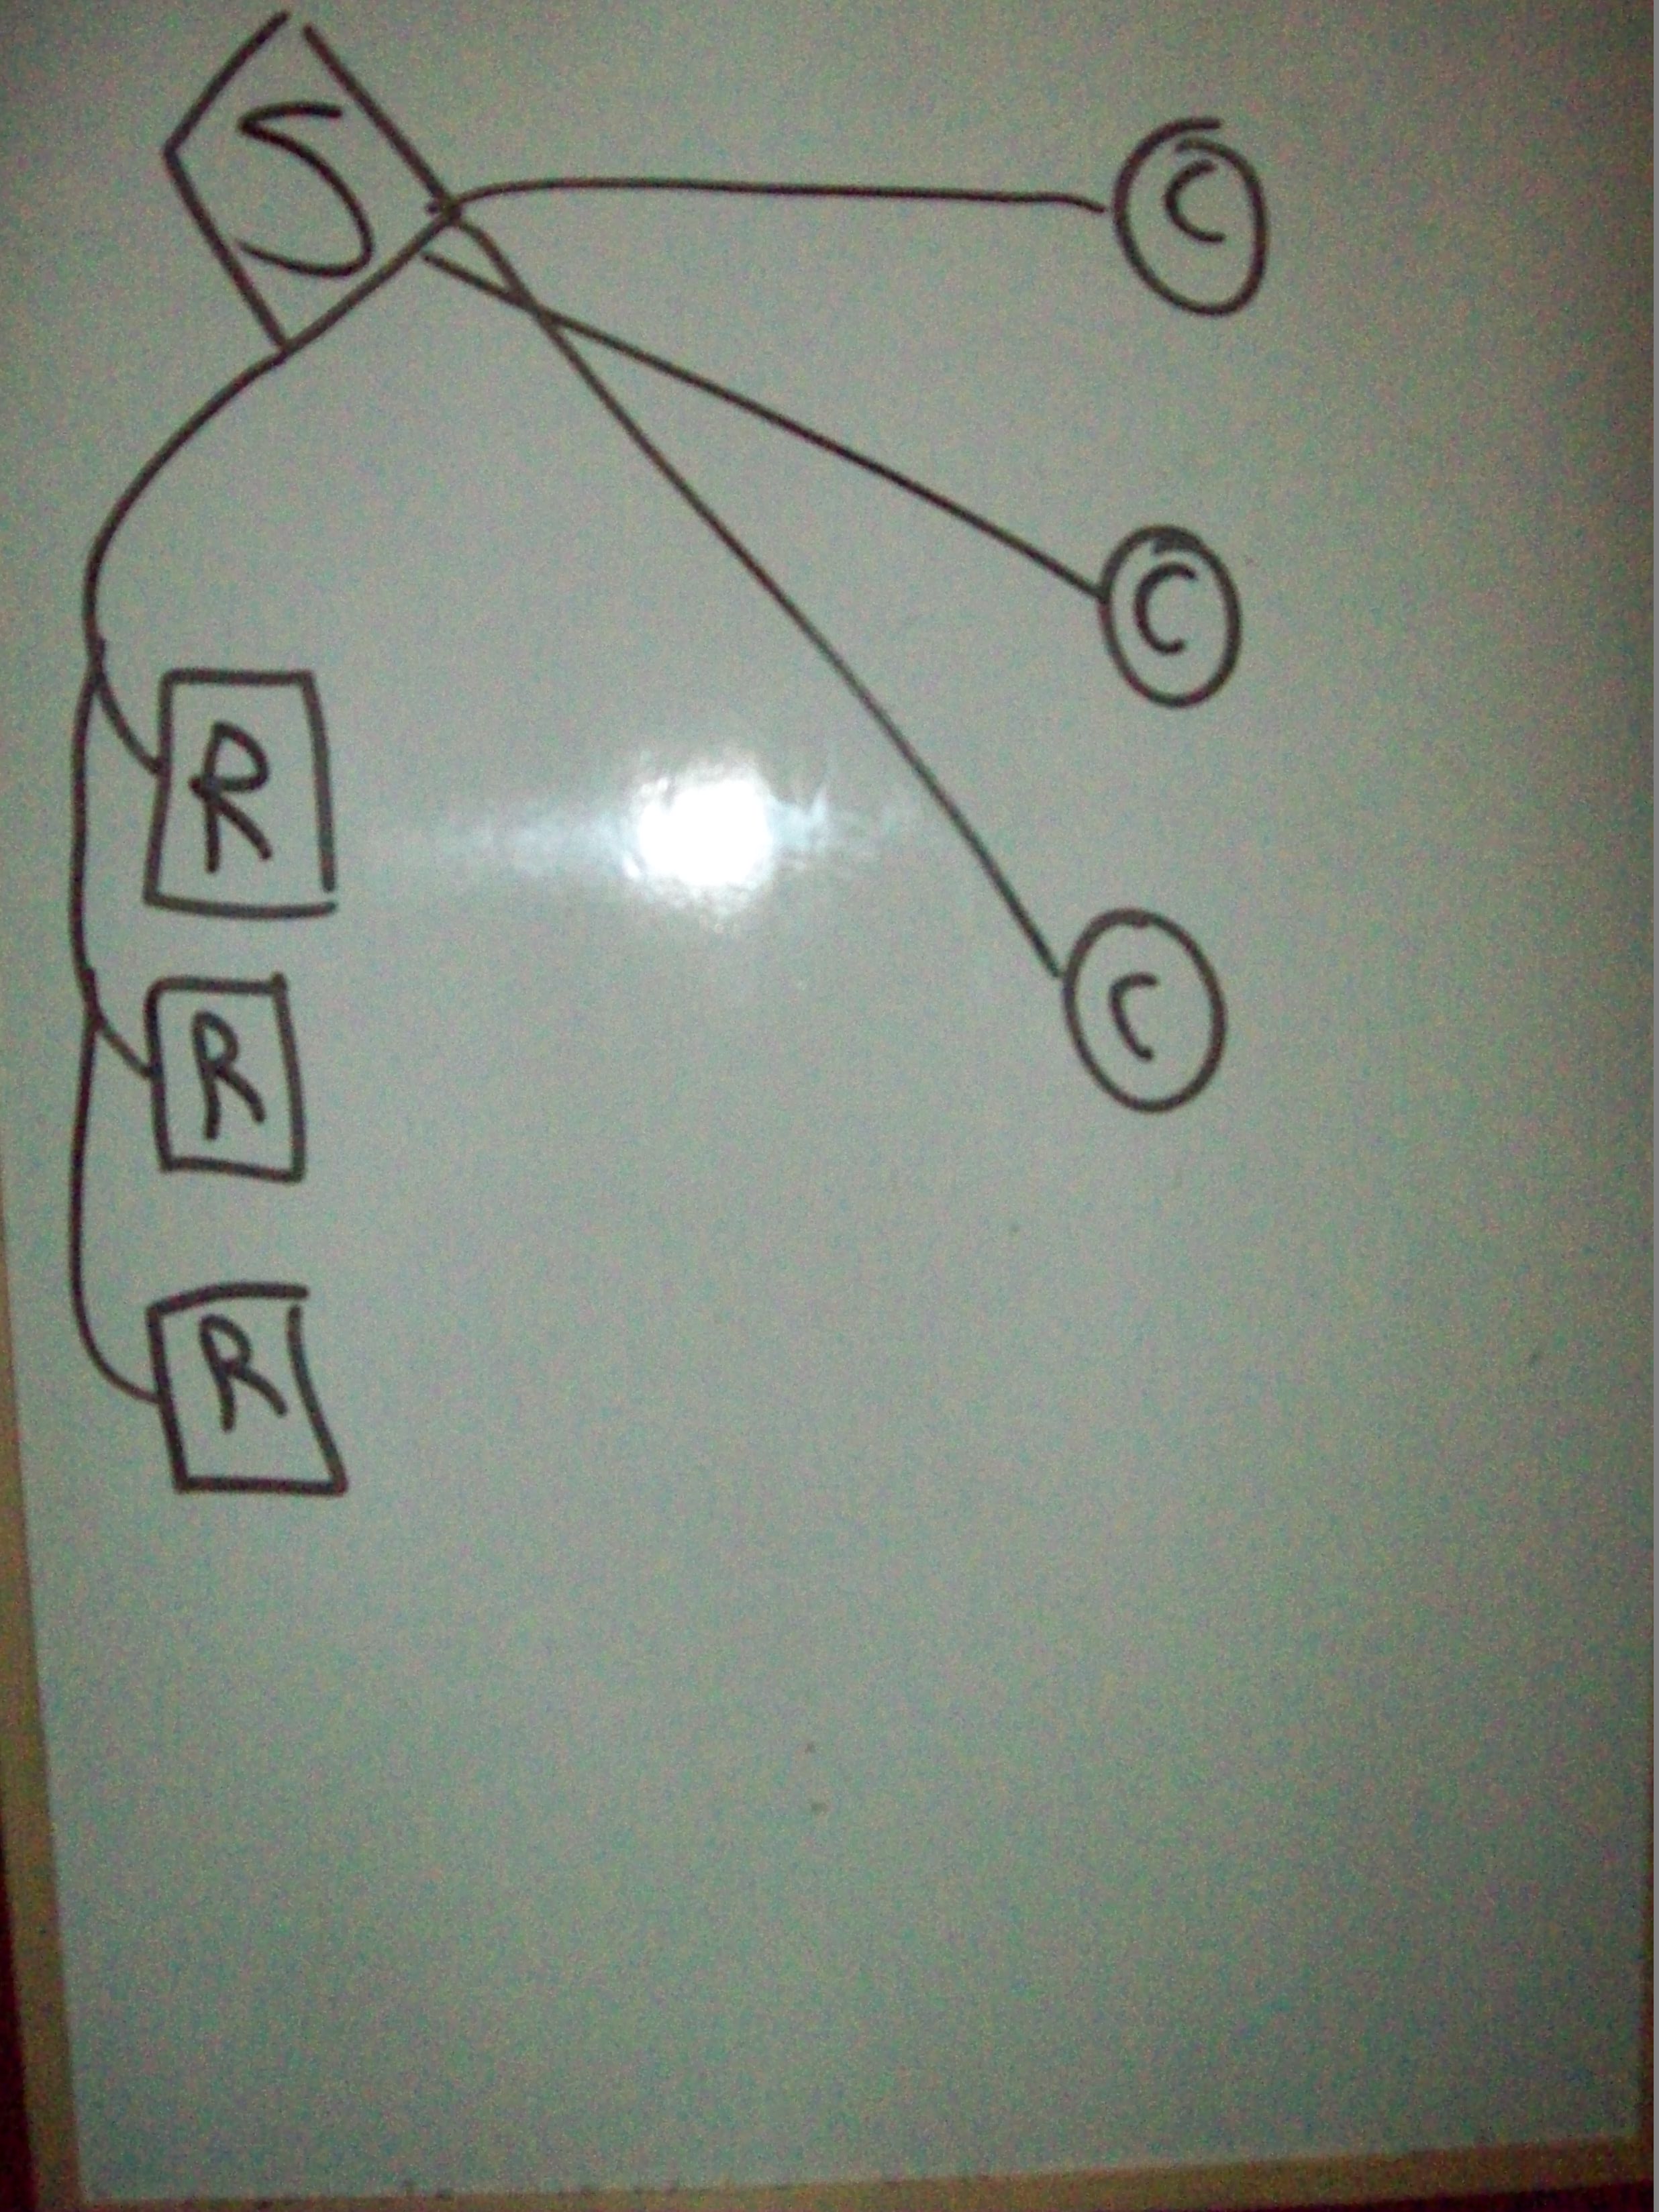 S
C
C
C
R
R
R